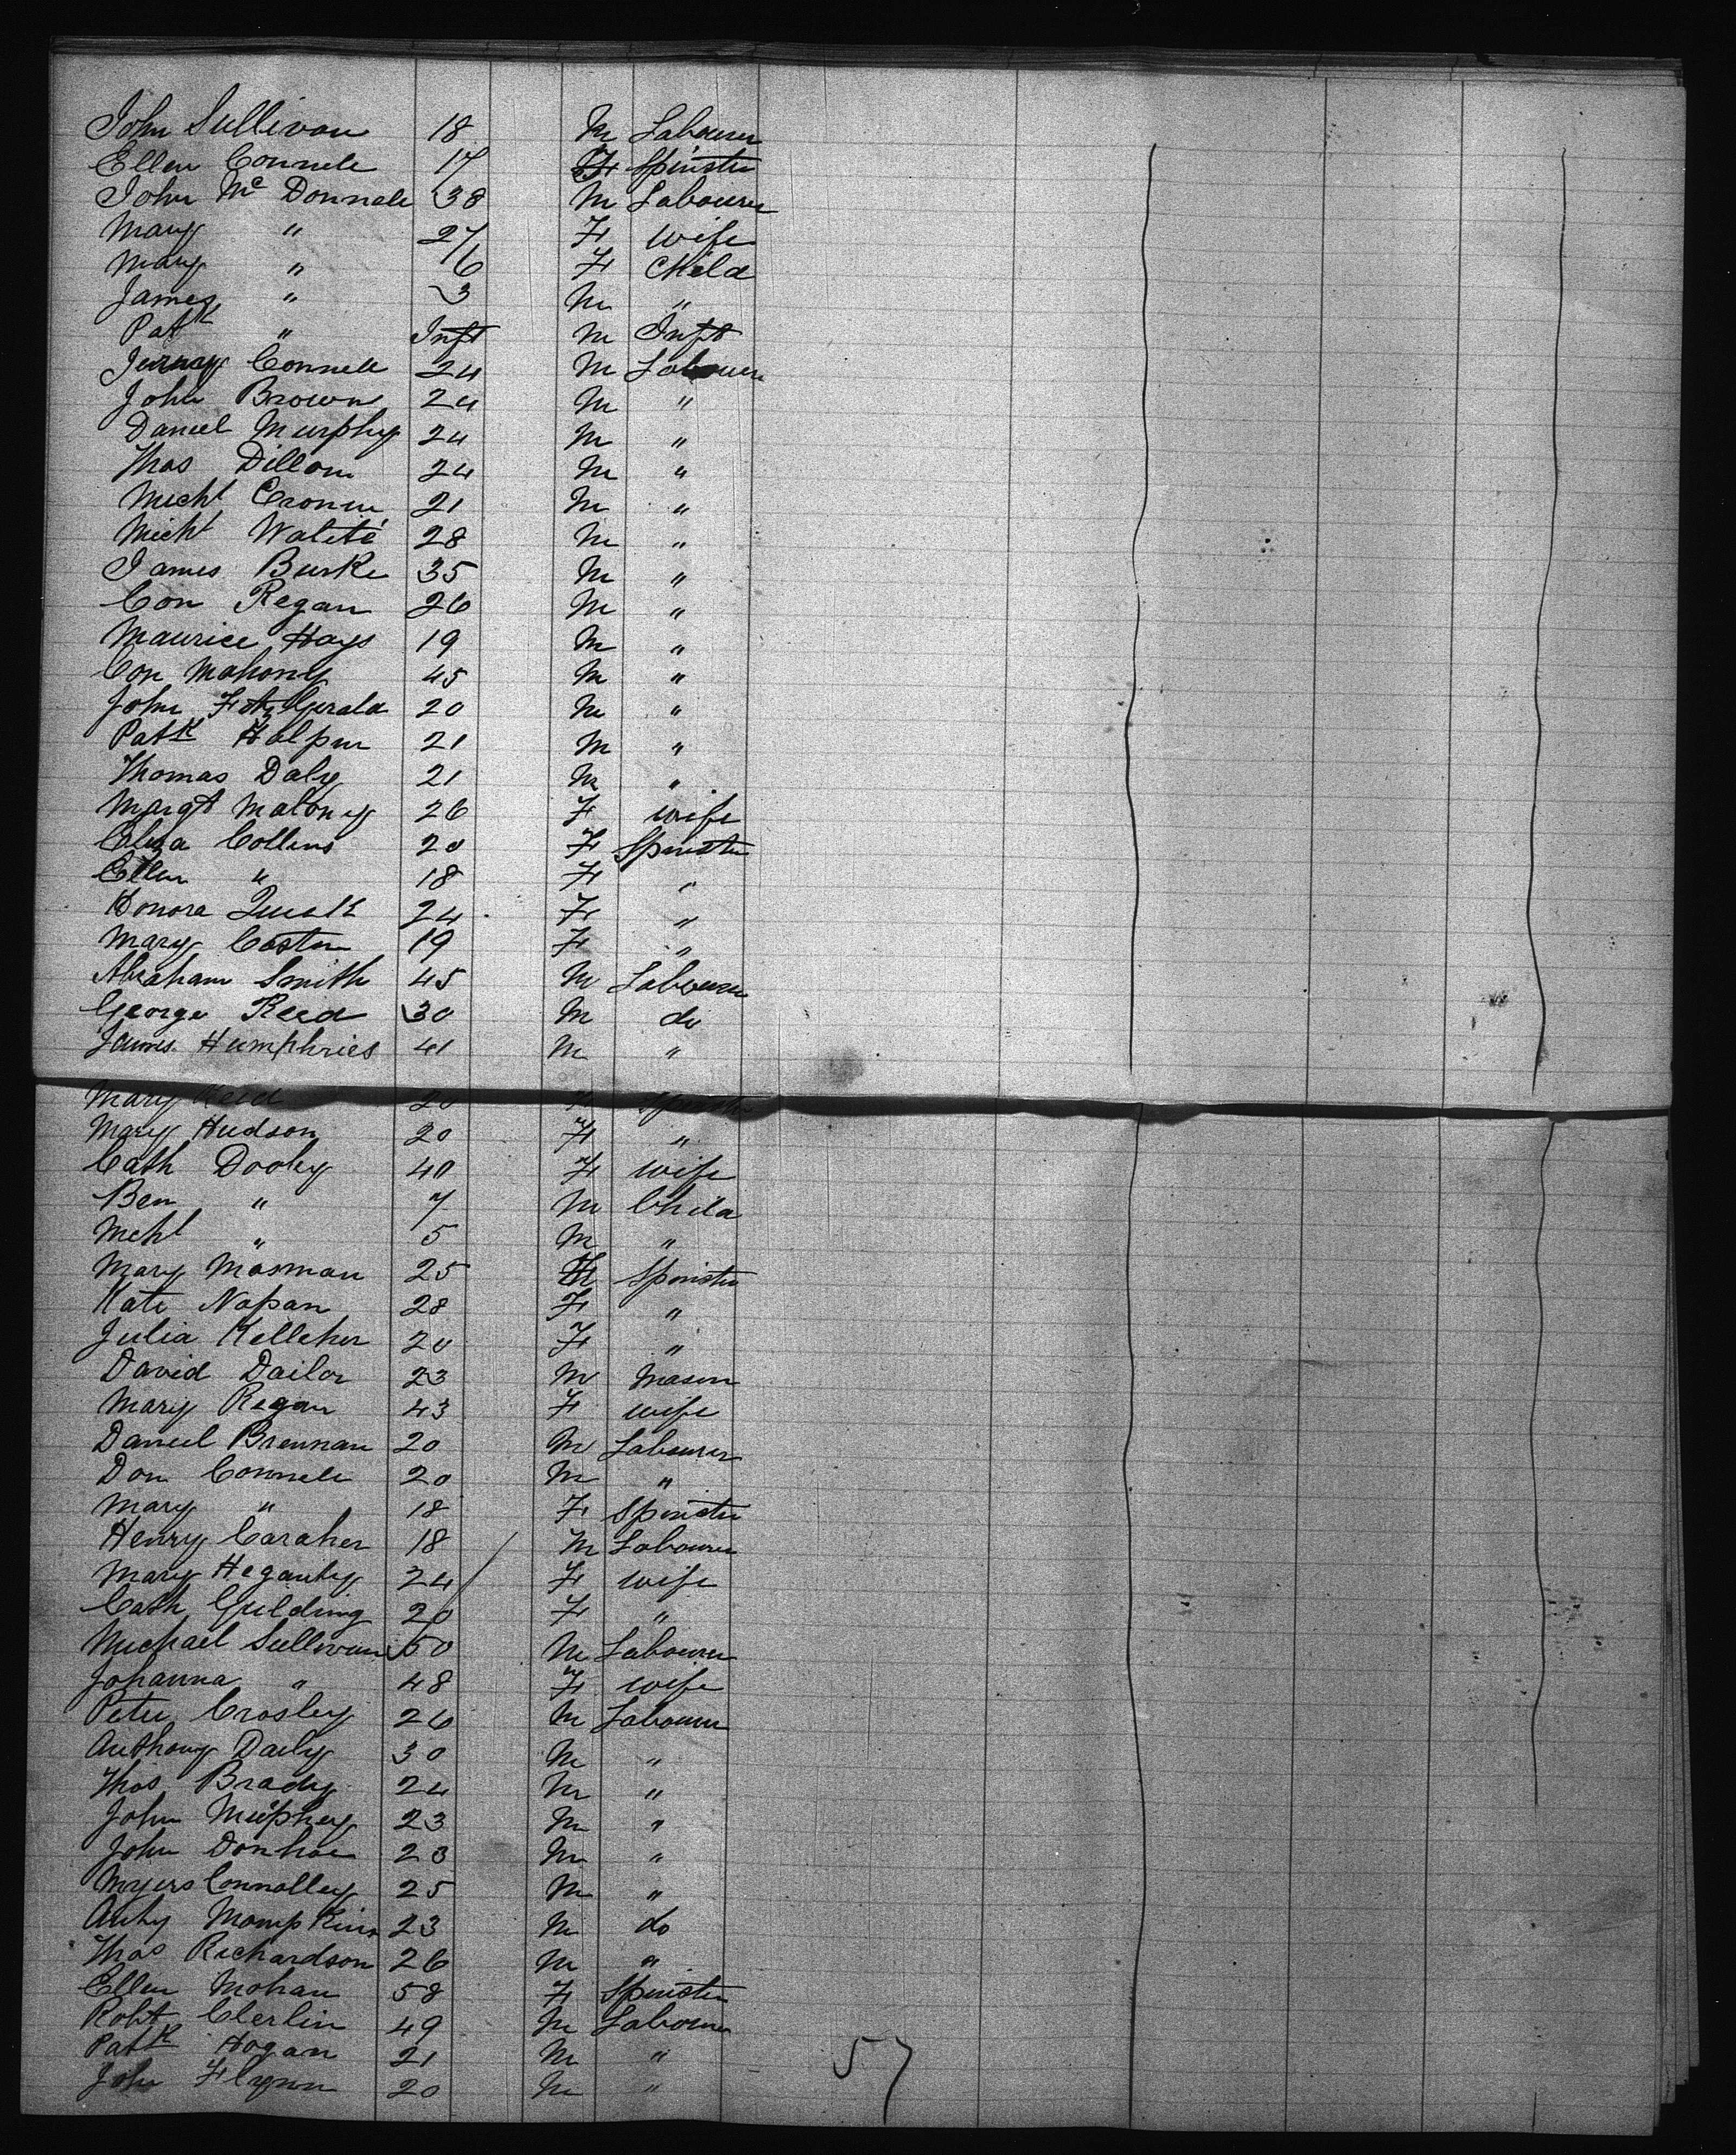 John Sullivan 18 M Labourer
Ellen Connele 17 F Spinster
John Mc Donnele 38 M Labourer
Mary " 27 F Wife
Mary " 6 F Child
James " 3 M "
Patk " Inft M Inft
Connele 24 M Labourer
John Brown 24 M "
Daniel Murphy 24 M "
Thos Dillon 24 M "
Michl Cronin 21 M "
Michl 28 M "
James Burke 35 M "
Con Regan 26 M "
Maurice Hays 19 M "
Con Mahony 45 M "
John FitzGerald 20 M "
Patk Halpin 21 M "
Thomas Daly 21 M "
Margt Maloney 26 F Wife
Eliza Collins 20 F Spinster
Ellen " 18 F "
Honora Quirk 24 F "
Mary Costen 19 F "
Abraham Smith 45 M Labourer
George Reed 30 M do
James Humphries 41 M "
Mary Reid 20 Spinster
Mary Hudson 20 F "
Cath Dooley 40 F Wife
Ben " 7 M Child
Michl " 5 M "
Mary Mosman 25 F Spinster
Kate Nopan 28 F "
Julia Kelleher 20 F "
David Dailor 23 M Mason
Mary Regan 43 F Wife
Daniel Brennan 20 M Labourer
Don Connele 20 M "
Mary " 18 F Spinster
Henry Caraher 18 M Labourer
Mary Heganty 24 F Wife
Cath Guilding 20 F "
Michael Sullivan 50 M Labourer
Johanna " 48 F Wife
Peter Crosley 26 M Labourer
Anthony Daily 30 M "
Thos Brady 24 M "
John Murphey 23 M "
John Donhoe 23 M "
Myers Connolley 25 M "
Anty Mompkins 23 M do
Thos Richardson 26 M "
Ellen Mohan 58 F Spinster
Robt Clerlin 49 M Labourer
Patk Hogan 21 M "
John Flynn 20 M "
57